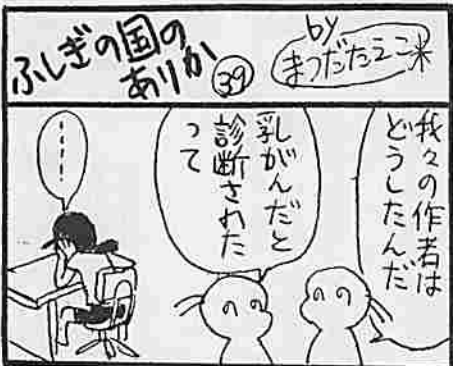 ふしぎの国の
ありか
39
by
まつだたえこ
我々の作者は
どうしたんだ
乳がんだと
診断された
って
・・・・